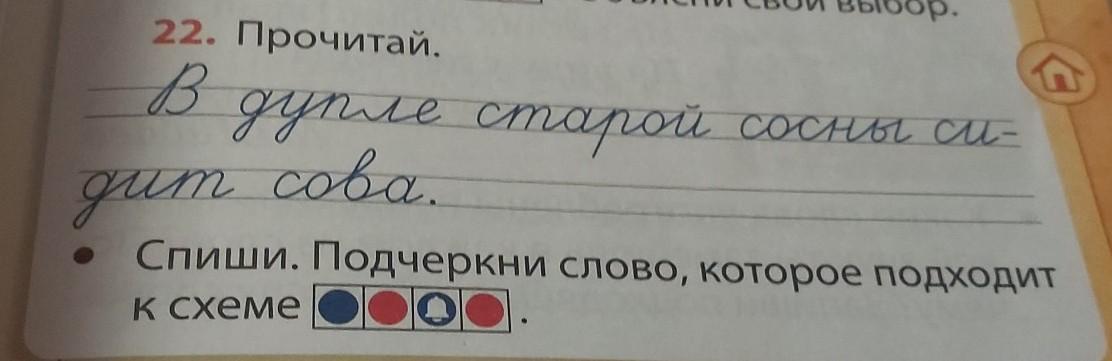 свой выбор.
22. Прочитай.
В дупле старой сосны си-
дит сова.
• Спиши. Подчеркни слово, которое подходит
к схеме .